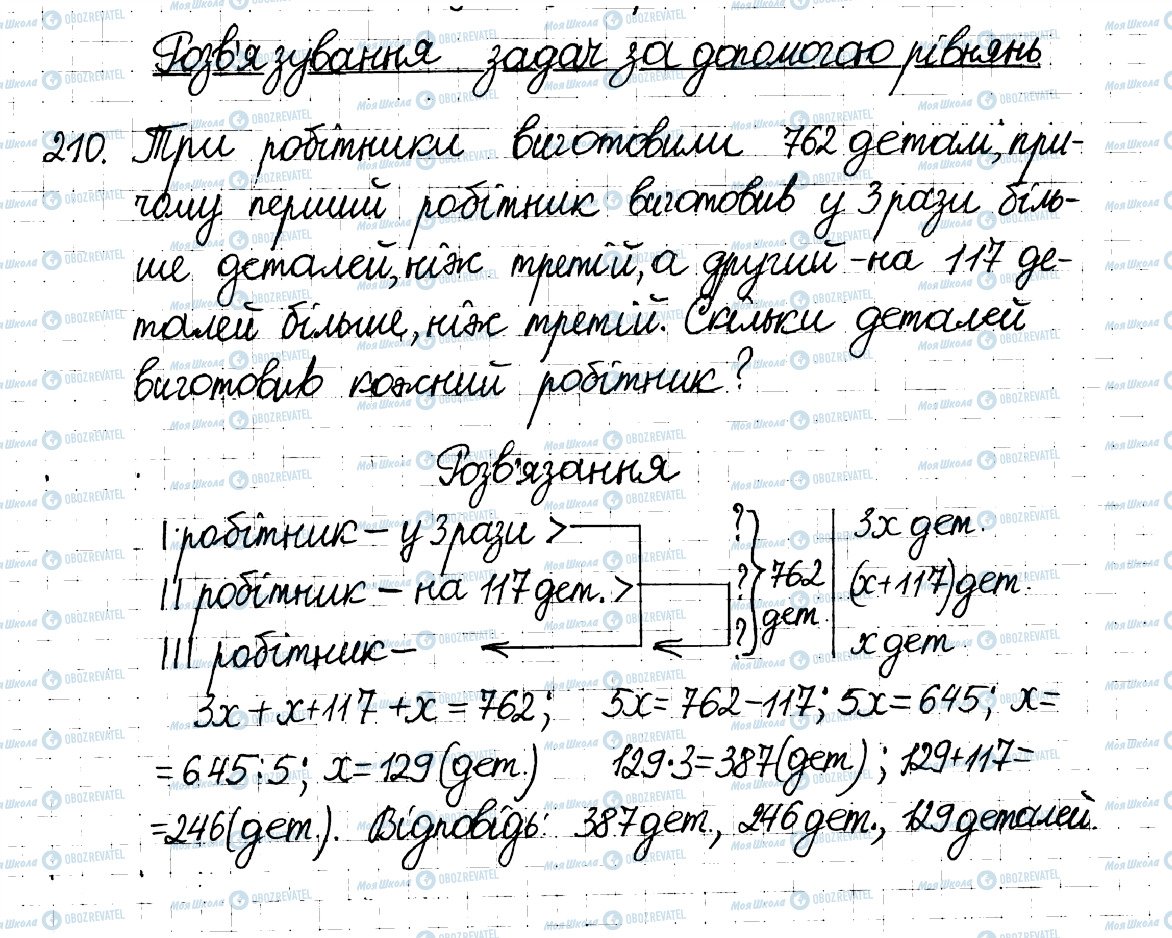 Розв'язування задач за допомогою рівнянь
210. Три робітники виготовили 762 деталі, при-
чому перший робітник виготовив у 3 рази біль-
ше деталей, ніж третій, а другий - на 117 де-
талей більше, ніж третій. Скільки деталей
виготовив кожний робітник?
Розв'язання
I робітник – у 3 рази > ? 3x дет.
II робітник – на 117 дет. > ? 762 (x+117) дет.
III робітник – ? дет. x дет
3x + x+117 + x = 762; 5x = 762-117; 5x = 645; x=
= 645:5; x=129 (дет.) 129·3=387 (дет.); 129+117=
=246 (дет.). Відповідь: 387 дет., 246 дет., 129 деталей.